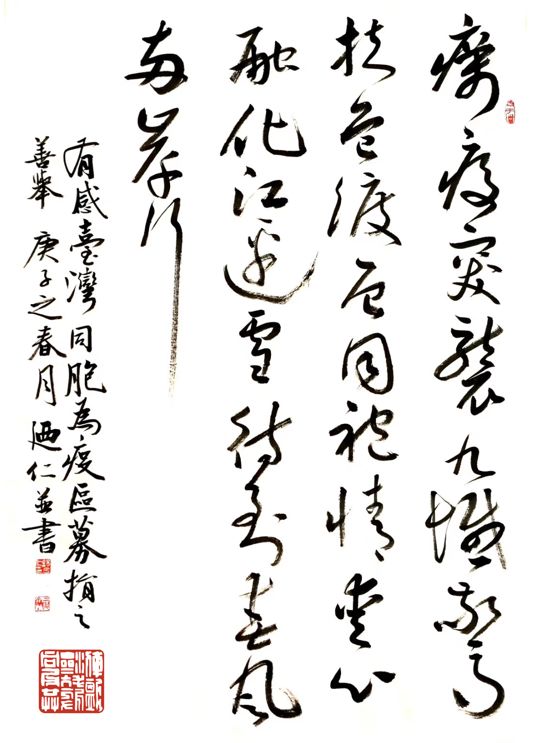 癘疫突襲九域驚
扶危渡厄同袍情愛心
融化江邊雪待到春風
兩岸行
有感臺灣同胞為疫區募捐之
善舉 庚子之春月 迺仁並書